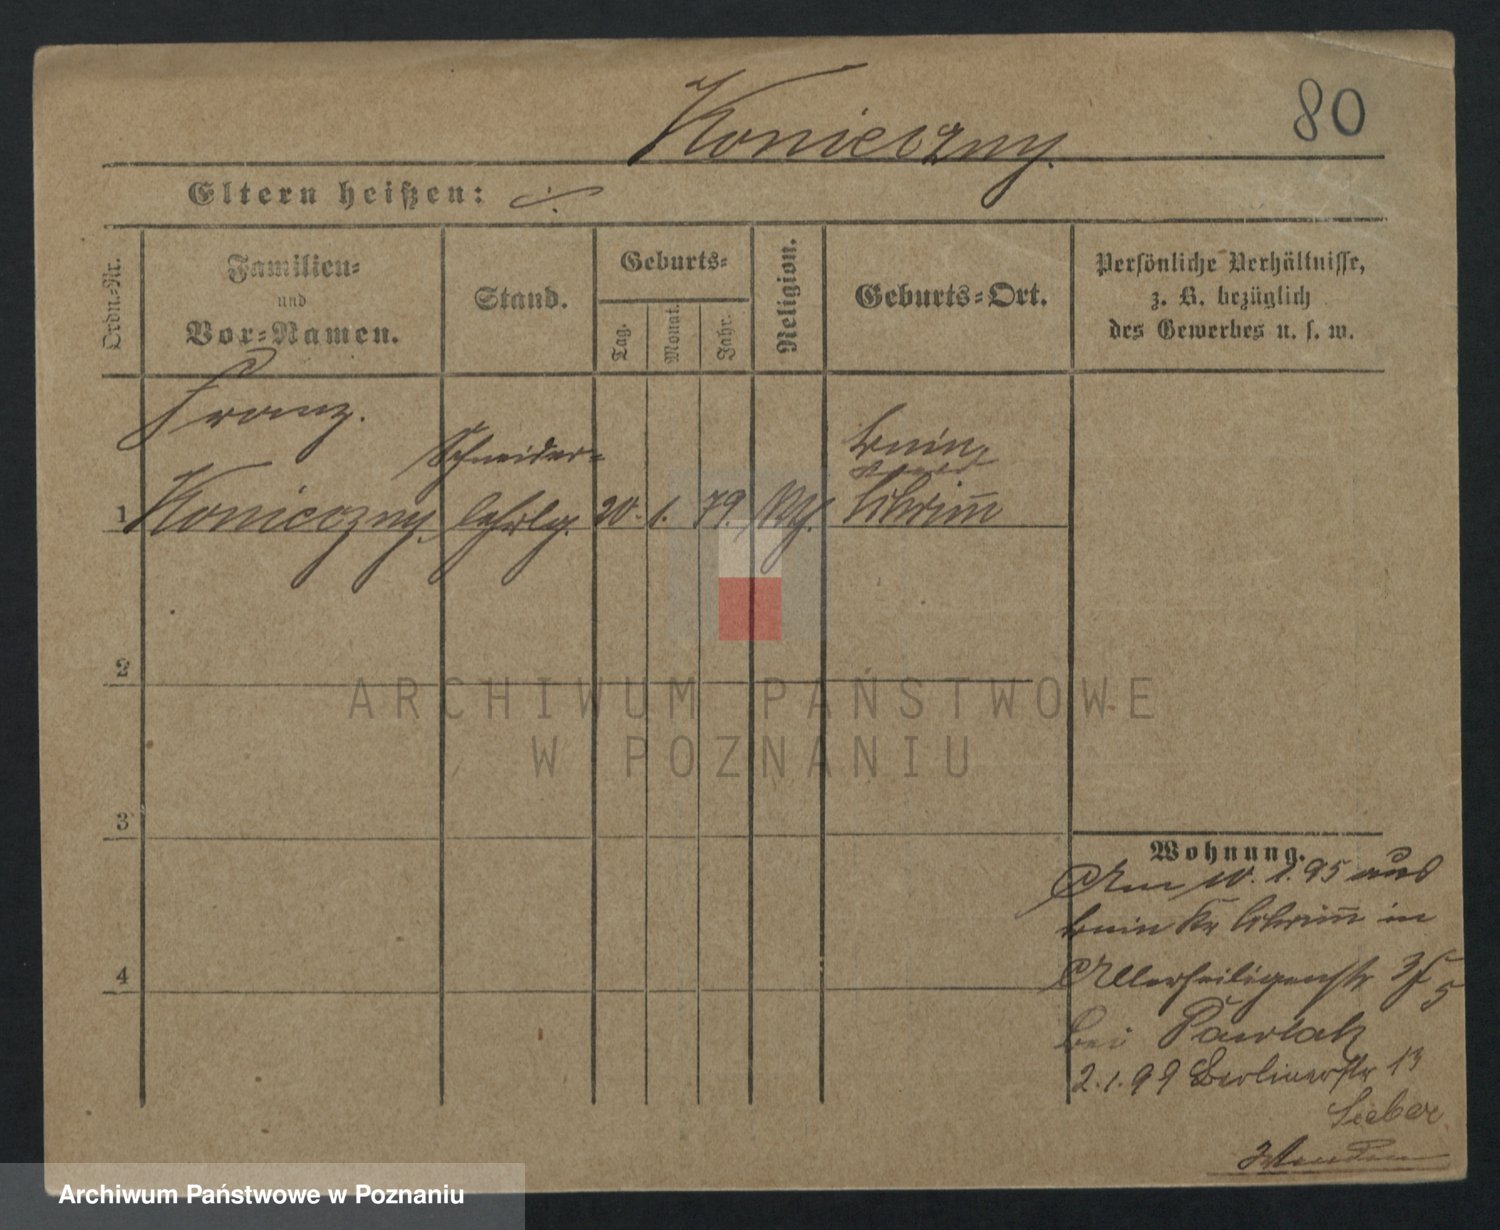 Konieczny.
80
Eltern heißen: ./.
Ordn.-Nr.
Familien-
und
Vor-Namen.
Stand.
Geburts-
Tag.
Monat.
Jahr.
Religion.
Geburts-Ort.
Persönliche Verhältnisse,
z. B. bezüglich
des Gewerbes u. s. w.
Franz.
Schneider-
Bnin,
1 Konieczny, lehrlg. 20. 1. 79. Schrimm
2
ARCHIWUM PAŃSTWOWE
W POZNANIU
3
Wohnung.
Am 10. 1. 95 aus
Bnin Kr Schrimm in
4
Allerheiligenstr 5
bei Pawlak
2.1.99 Berlinerstr 13
Sieber
Wenden
Archiwum Państwowe w Poznaniu